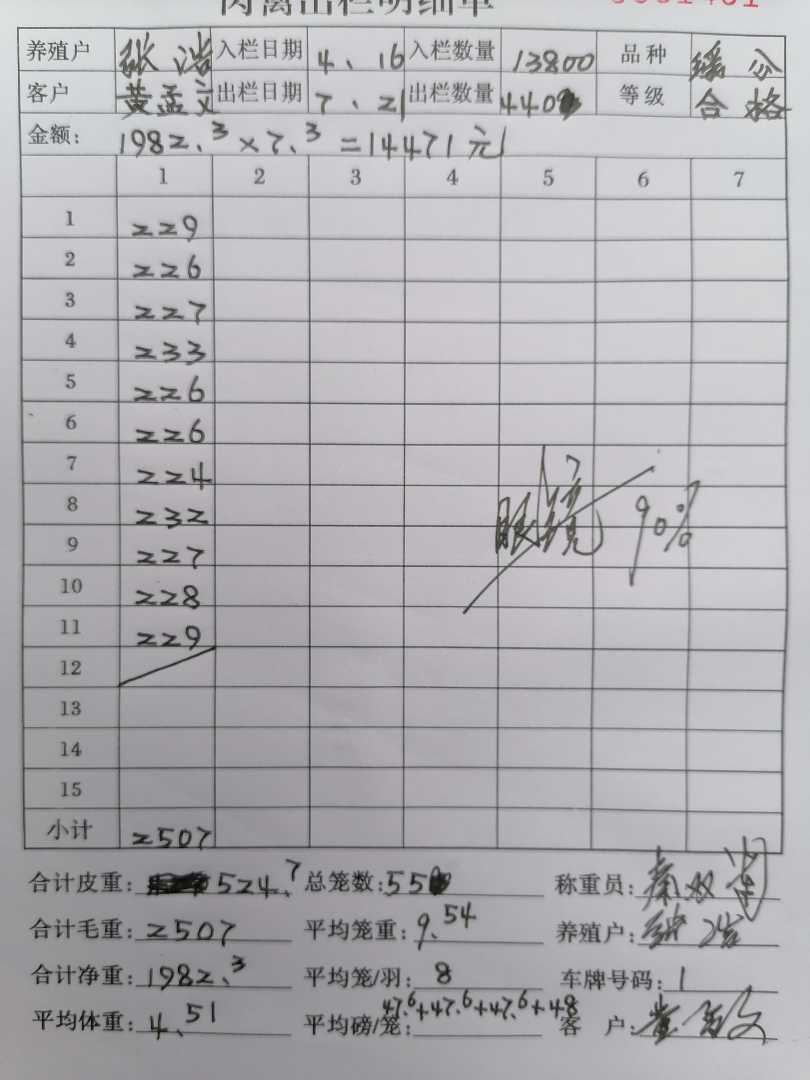 肉禽出栏明细单
养殖户 张浩 入栏日期 4、16 入栏数量 13800 品种
客户 黄孟文 出栏日期 7、21 出栏数量 440 等级 合格
金额: 1982.3×7.3=14471元
1 2 3 4 5 6 7
1 229
2 226
3 227
4 233
5 226
6 226
7 224
8 232
9 227
10 228
11 229
12
13
14
15
眼镜 90%
小计 2507
合计皮重: 524.7 总笼数: 55 称重员:
合计毛重: 2507 平均笼重: 9.54 养殖户: 张浩
合计净重: 1982.3 平均笼/羽: 8 车牌号码: 1
平均体重: 4.51 平均磅/笼: 47.6+47.6+47.6+48 客 户: